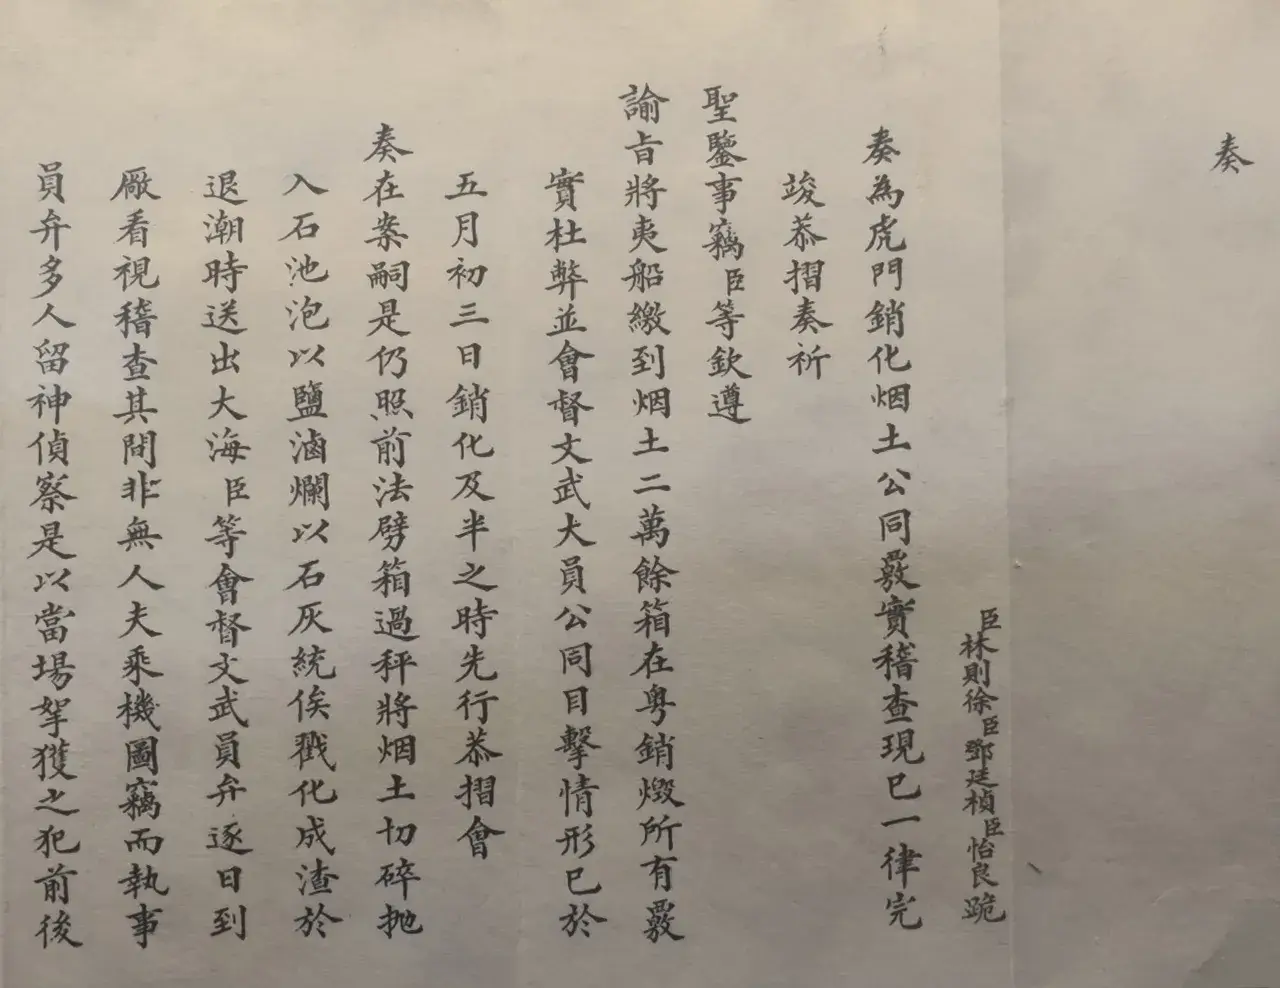 奏
臣林則徐臣鄧廷楨臣怡良跪
奏為虎門銷化烟土公同覈實稽查現已一律完
竣恭摺奏祈
聖鑒事竊臣等欽遵
諭旨將夷船繳到烟土二萬餘箱在粵銷燬所有覈
實杜弊並會督文武大員公同目擊情形已於
五月初三日銷化及半之時先行恭摺會
奏在案嗣是仍照前法劈箱過秤將烟土切碎拋
入石池泡以鹽滷爛以石灰統俟戳化成渣於
退潮時送出大海臣等會督文武員弁逐日到
廠看視稽查其間非無人夫乘機圖竊而執事
員弁多人留神偵察是以當場拏獲之犯前後